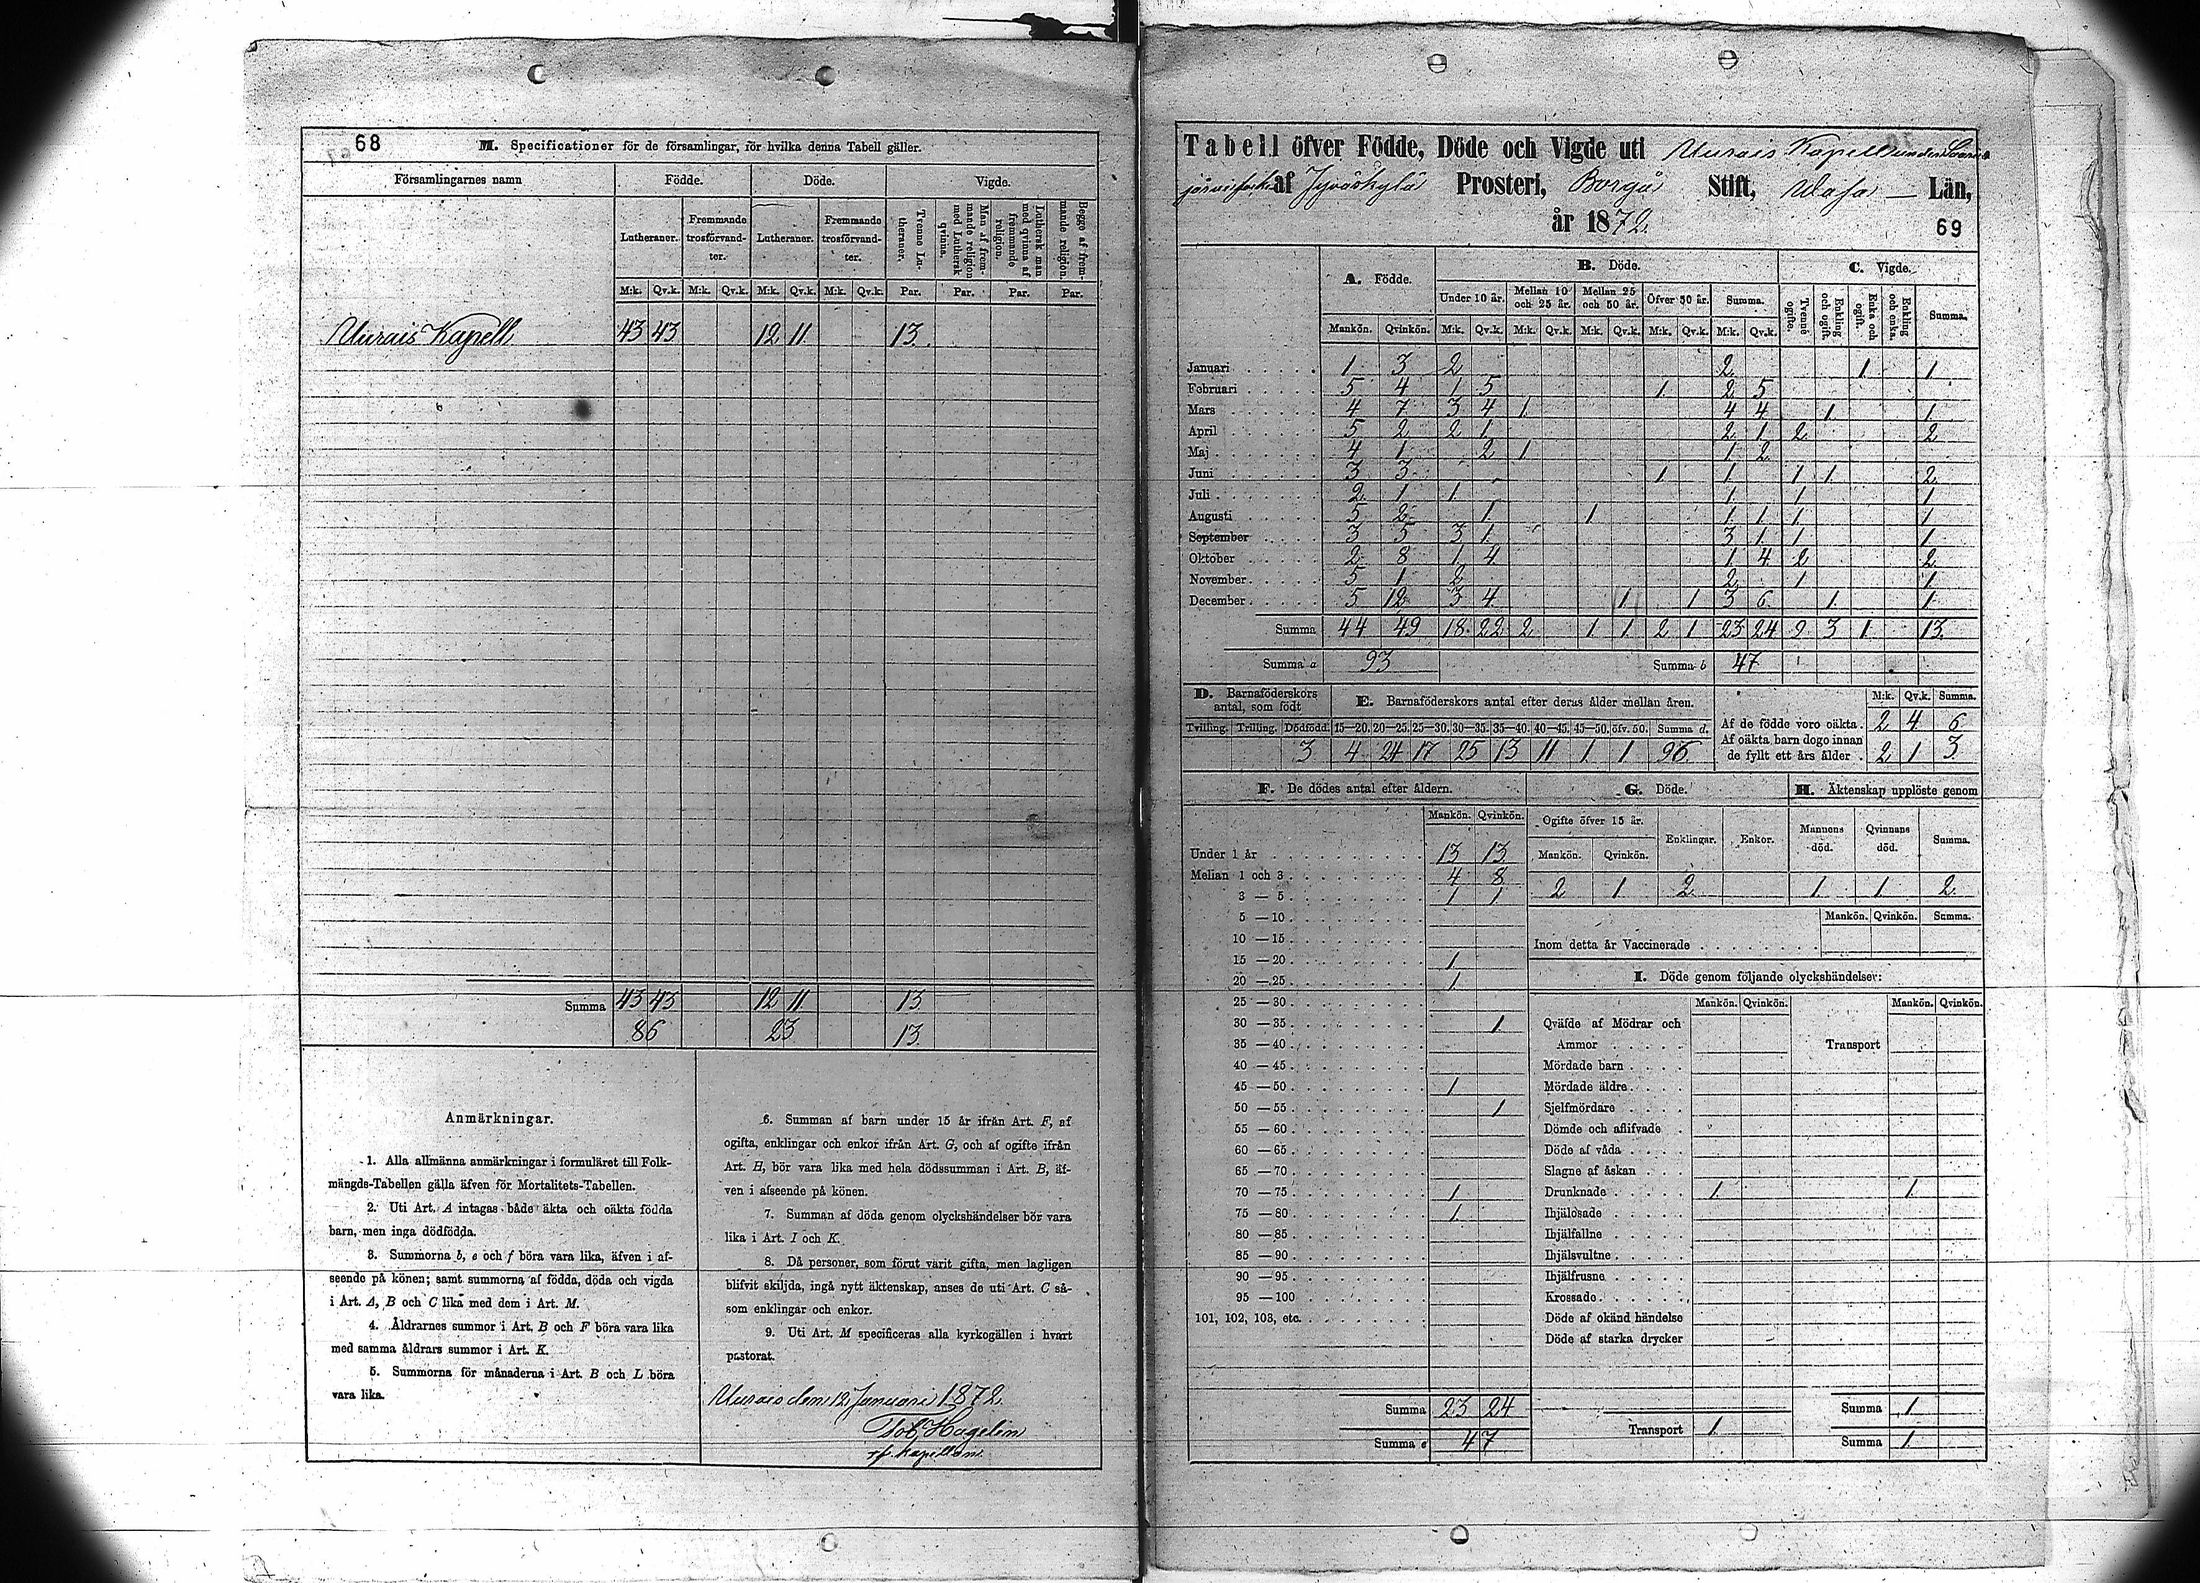 68
M. Specificationer för de församlingar, för hvilka denna Tabell gäller.
Församlingarnes namn Födde. Döde. Vigde.
Lutheraner. Fremmande trosförvandter. Lutheraner. Fremmande trosförvandter. Tvenne Lutheraner. Man af fremmande religion med Luthersk qvinna. Luthersk man med qvinna af fremmande religion. Begge af fremmande religion.
M:k. Qv.k. M:k. Qv.k. M:k. Qv.k. M:k. Qv.k. Par. Par. Par. Par.
Uurais Kapell 43 43 12 11 13
Summa 43 43 12 11 13
86 23 13
Anmärkningar.
1. Alla allmänna anmärkningar i formuläret till Folk-
mängds-Tabellen gälla äfven för Mortalitets-Tabellen.
2. Uti Art. A intagas både äkta och oäkta födda
barn, men inga dödfödda.
3. Summorna b, e och f böra vara lika, äfven i af-
seende på könen; samt summorna af födda, döda och vigda
i Art. A, B och C lika med dem i Art. M.
4. Åldrarnes summor i Art. B och F böra vara lika
med samma åldrars summor i Art. K.
5. Summorna för månaderna i Art. B och L böra
vara lika.
6. Summan af barn under 15 år ifrån Art. F, af
ogifta, enklingar och enkor ifrån Art. G, och af ogifte ifrån
Art. H, bör vara lika med hela dödssumman i Art. B, äf-
ven i afseende på könen.
7. Summan af döda genom olyckshändelser bör vara
lika i Art. I och K.
8. Då personer, som förut varit gifta, men lagligen
blifvit skiljda, ingå nytt äktenskap, anses de uti Art. C så-
som enklingar och enkor.
9. Uti Art. M specificeras alla kyrkogällen i hvart
pastorat.
Uurais den 12 Januari 1872.
Tob. Hagelin
kapellan
Tabell öfver Födde, Döde och Vigde uti Uurais Kapell under Saari-
järvi socken af Jyväskylä Prosteri, Borgå Stift, Wasa Län,
år 1872.
69
A. Födde. B. Döde. C. Vigde.
Under 10 år. Mellan 10 och 25 år. Mellan 25 och 50 år. Öfver 50 år. Summa. Tvenne ogifte. Enkling och ogift. Enka och ogift. Enngkling och enka. Summa.
Mankön. Qvinkön. M:k. Qv.k. M:k. Qv.k. M:k. Qv.k. M:k. Qv.k. M:k. Qv.k.
Januari 1 3 2 2 1 1
Februari 5 4 1 5 1 2 5
Mars 4 7 3 4 1 4 4 1 1
April 5 2 2 1 2 1 2 2
Maj 4 1 2 1 1 2
Juni 3 3 1 1 1 1 2
Juli 2 1 1 1 1 1
Augusti 5 2 1 1 1 1 1 1
September 3 5 3 1 3 1 1 1
Oktober 2 8 1 4 1 4 2 2
November 5 1 2 2 1 1
December 5 12 3 4 1 1 3 6 1 1
Summa 44 49 18 22 2 1 1 2 1 23 24 9 3 1 13
Summa a 93 Summa b 47
D. Barnaföderskors antal, som födt
Tvilling. Trilling. Dödfödd.
3
E. Barnaföderskors antal efter deras ålder mellan åren.
15—20. 20—25. 25—30. 30—35. 35—40. 40—45. 45—50. öfv. 50. Summa d.
4 24 17 25 13 11 1 1 96
M:k. Qv.k. Summa.
Af de födde voro oäkta 2 4 6
Af oäkta barn dogo innan
de fyllt ett års ålder 2 1 3
F. De dödes antal efter åldern.
Mankön. Qvinkön.
Under 1 år 13 13
Mellan 1 och 3 4 8
3 — 5 1 1
5 — 10
10 — 15
15 — 20 1
20 — 25 1
25 — 30
30 — 35 1
35 — 40
40 — 45
45 — 50 1
50 — 55 1
55 — 60
60 — 65
65 — 70
70 — 75 1
75 — 80 1
80 — 85
85 — 90
90 — 95
95 — 100
101, 102, 103, etc.
Summa 23 24
Summa e 47
G. Döde.
Ogifte öfver 15 år. Enklingar. Enkor.
Mankön. Qvinkön.
2 1 2
H. Äktenskap upplöste genom
Mannens död. Qvinnans död. Summa.
1 1 2
Mankön. Qvinkön. Summa.
Inom detta år Vaccinerade
I. Döde genom följande olyckshändelser:
Mankön. Qvinkön. Mankön. Qvinkön.
Qväfde af Mödrar och
Ammor Transport
Mördade barn
Mördade äldre
Sjelfmördare
Dömde och aflifvade
Döde af våda
Slagne af åskan
Drunknade 1 1
Ihjälosade
Ihjälfallne
Ihjälsvultne
Ihjälfrusne
Krossade
Döde af okänd händelse
Döde af starka drycker
Summa 1
Transport 1
Summa 1